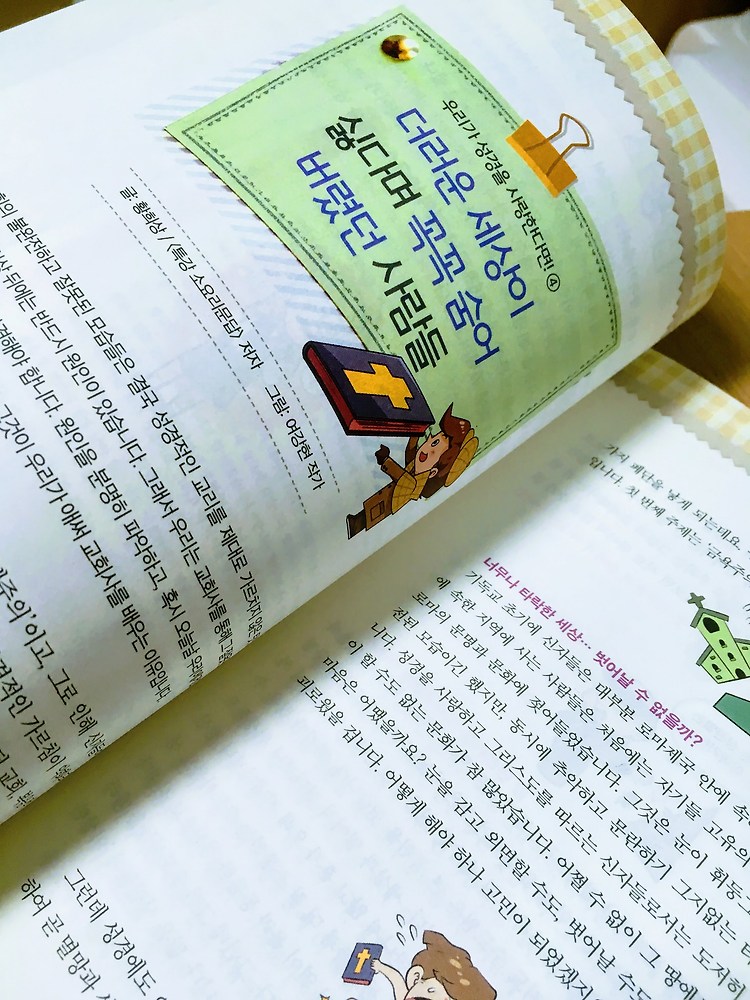 우리가 성경을 사랑한다면! ④
더러운 세상이
싫다며 꼭꼭 숨어
버렸던 사람들
글: 황희상 / 〈특강 소요리문답〉 저자 그림: 여강현 작가
불완전하고 잘못된 모습들은 결국 성경적인 교리를 제대로 가르치지 않은
뒤에는 반드시 원인이 있습니다. 그래서 우리는 교회사를 통해 그
해야 합니다. 원인을 분명히 파악하고, 혹시 오늘날 우리
그것이 우리가 애써 교회사를 배우는 이유입니다.
이고, 그로 인해
적인 가르침이
교회,
가지 폐단을 낳게 되는데요.
입니다. 첫 번째 주제는 '금욕주의
너무나 타락한 세상… 벗어날 수 없을까?
기독교 초기에 신자들은 대부분 로마제국 안에
에 속한 지역에 사는 사람들은 처음에는 자기들 고유의
로마의 문명과 문화에 젖어들었습니다. 그것은 눈이 휘둥그
전된 모습이긴 했지만, 동시에 추악하고 문란하기 그지없는
이 할 수도 없는 문화가 참 많았습니다. 어쩔 수 없이 그 땅에
니다. 성경을 사랑하고 그리스도를 따르는 신자들로서는 도저히
마음은 어땠을까요? 눈을 감고 외면할 수도, 벗어날 수도
괴로웠을 겁니다. 어떻게 해야 하나 고민이 되었겠지
그런데 성경에도
하여 곧 멸망과